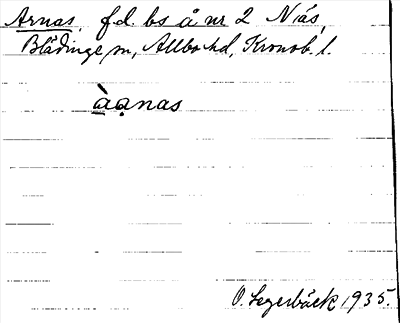 Arnas, f.d. bs å nr 2 Niås,
Blädinge sn, Allbo hd, Kronob. l.
àạnas
O. Segerbäck 1935.